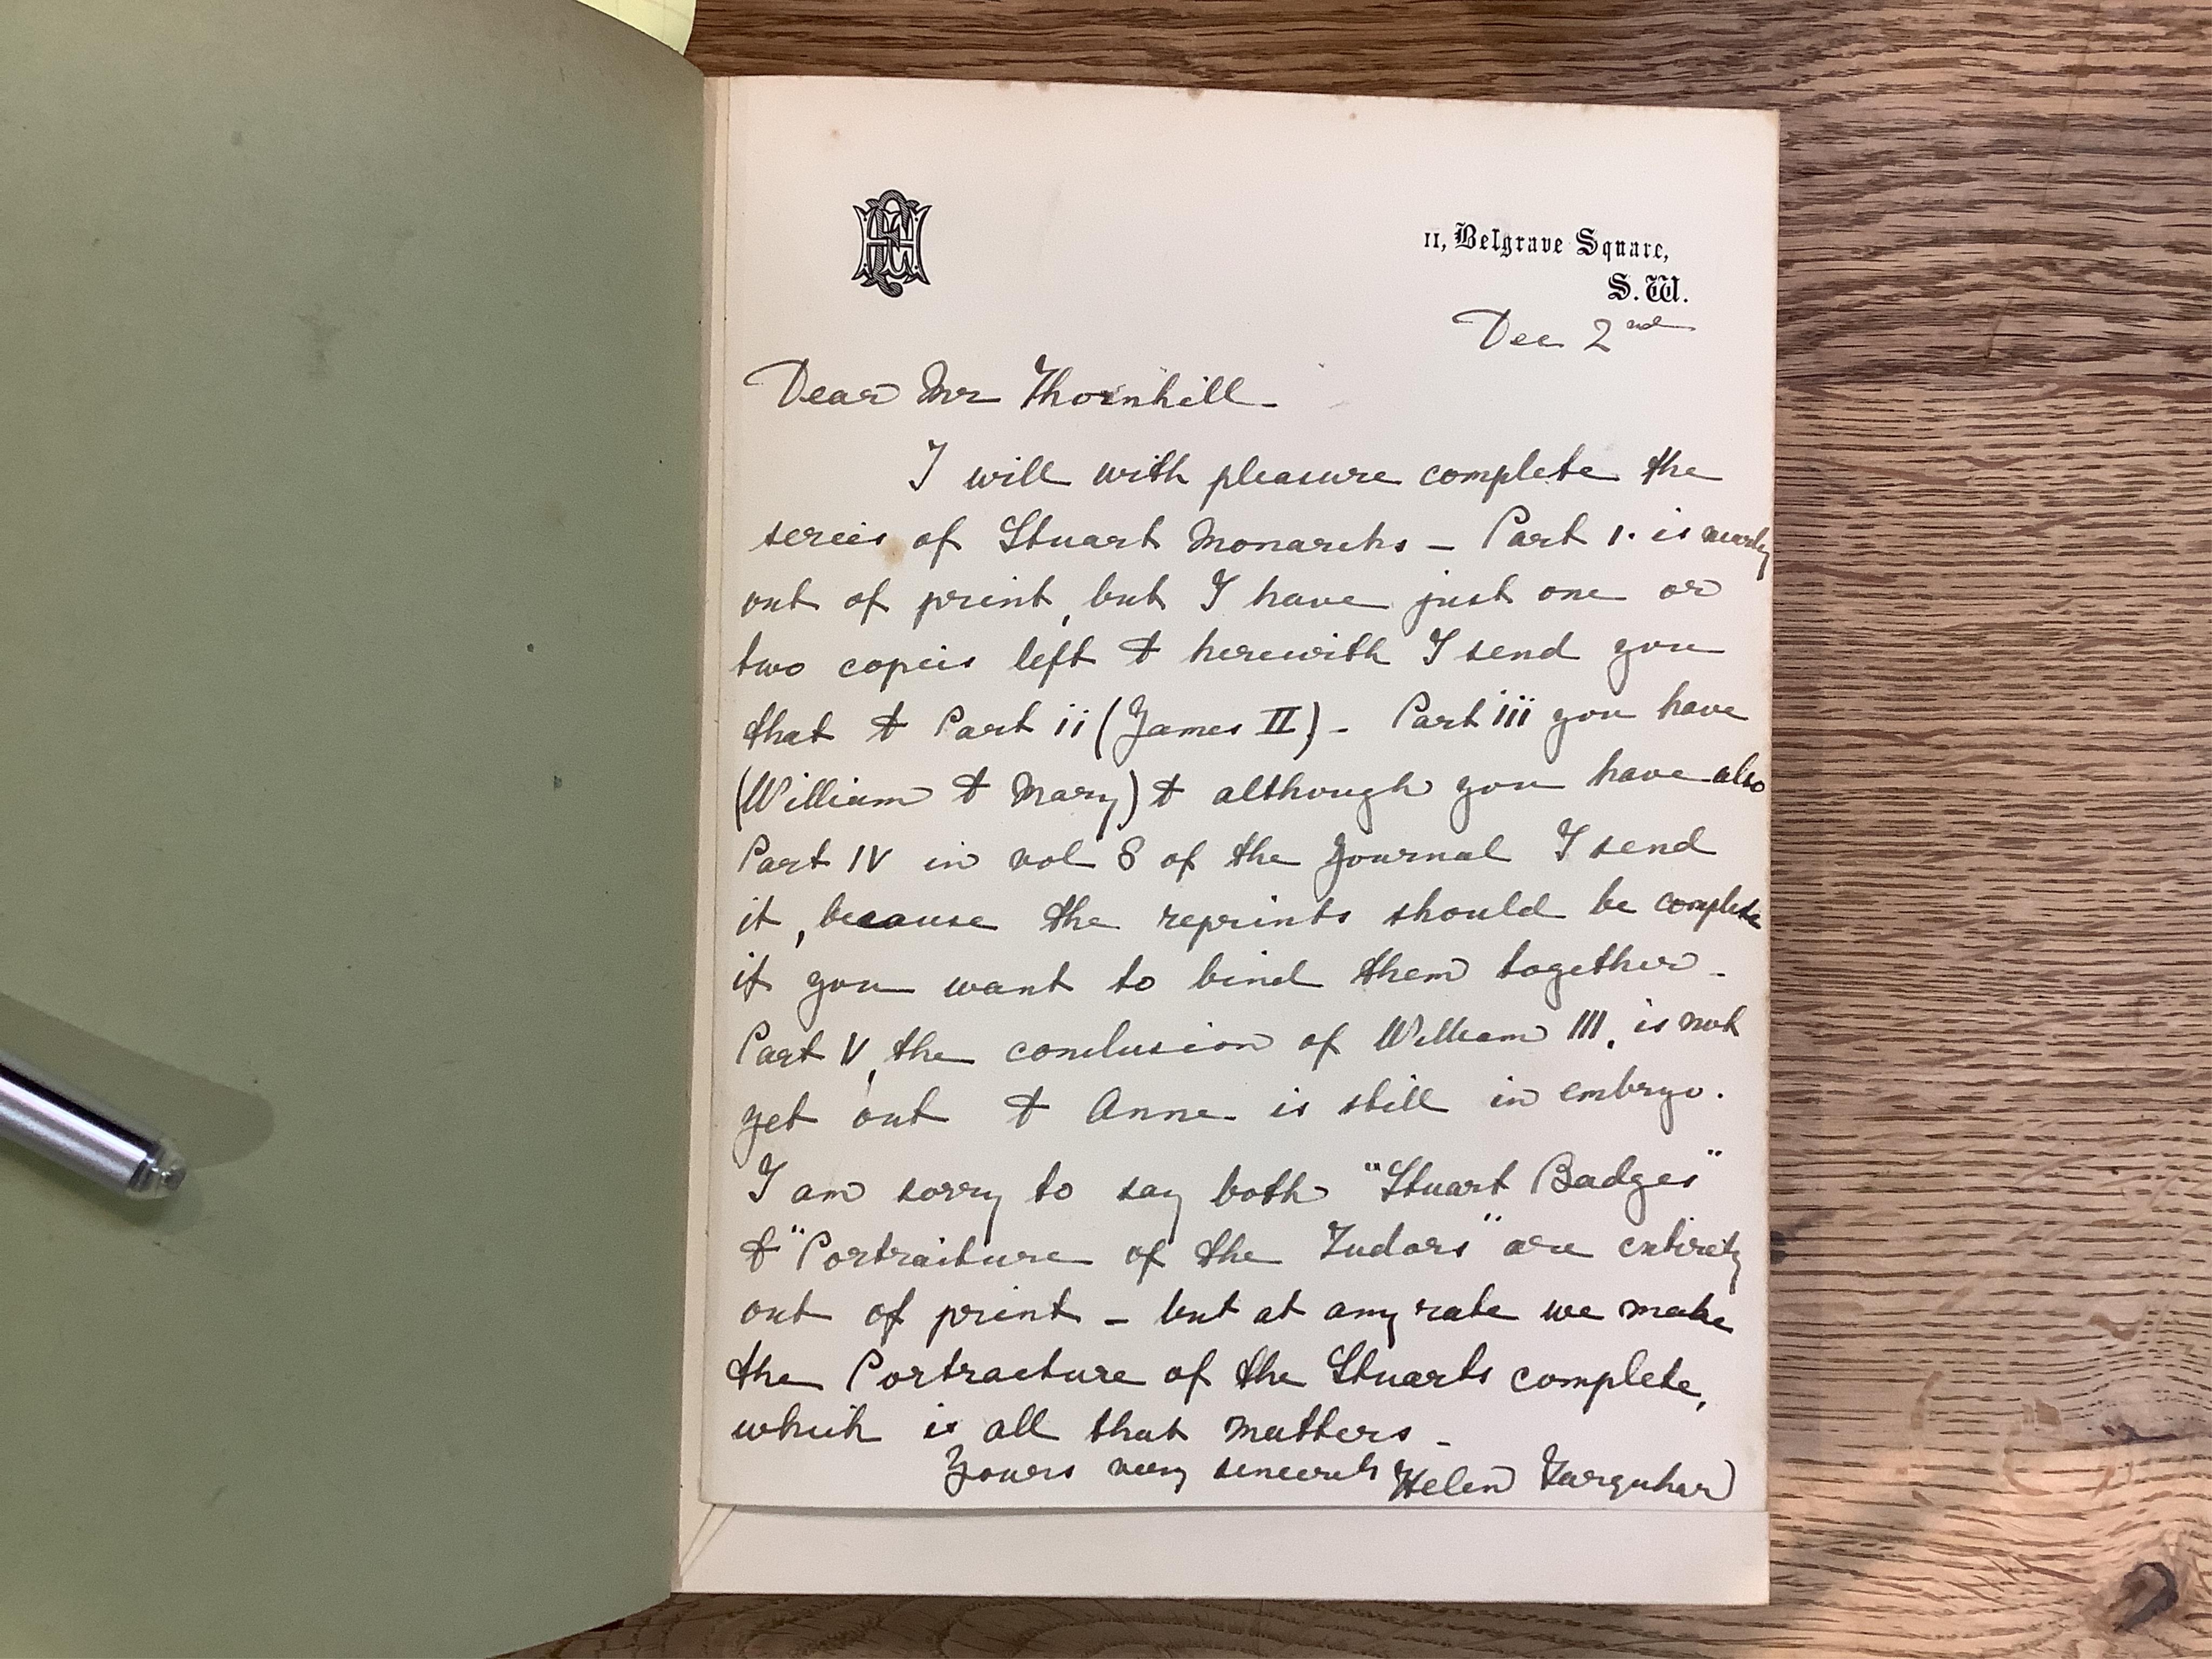 11, Belgrave Square,
S.W.
Dec 2nd
Dear Mr Thornhill -
I will with pleasure complete the
series of Stuart Monarchs - Part 1. is nearly
out of print, but I have just one or
two copies left & herewith I send you
that & Part ii (James II) - Part iii you have
(William & Mary) & although you have also
Part IV in vol 8 of the Journal I send
it, because the reprints should be complete
if you want to bind them together -
Part V, the conclusion of William III, is not
yet out & Anne is still in embryo.
I am sorry to say both "Stuart Badges"
& "Portraiture of the Tudors" are entirely
out of print - but at any rate we make
the Portraiture of the Stuarts complete,
which is all that matters -
Yours very sincerely Helen Farquhar